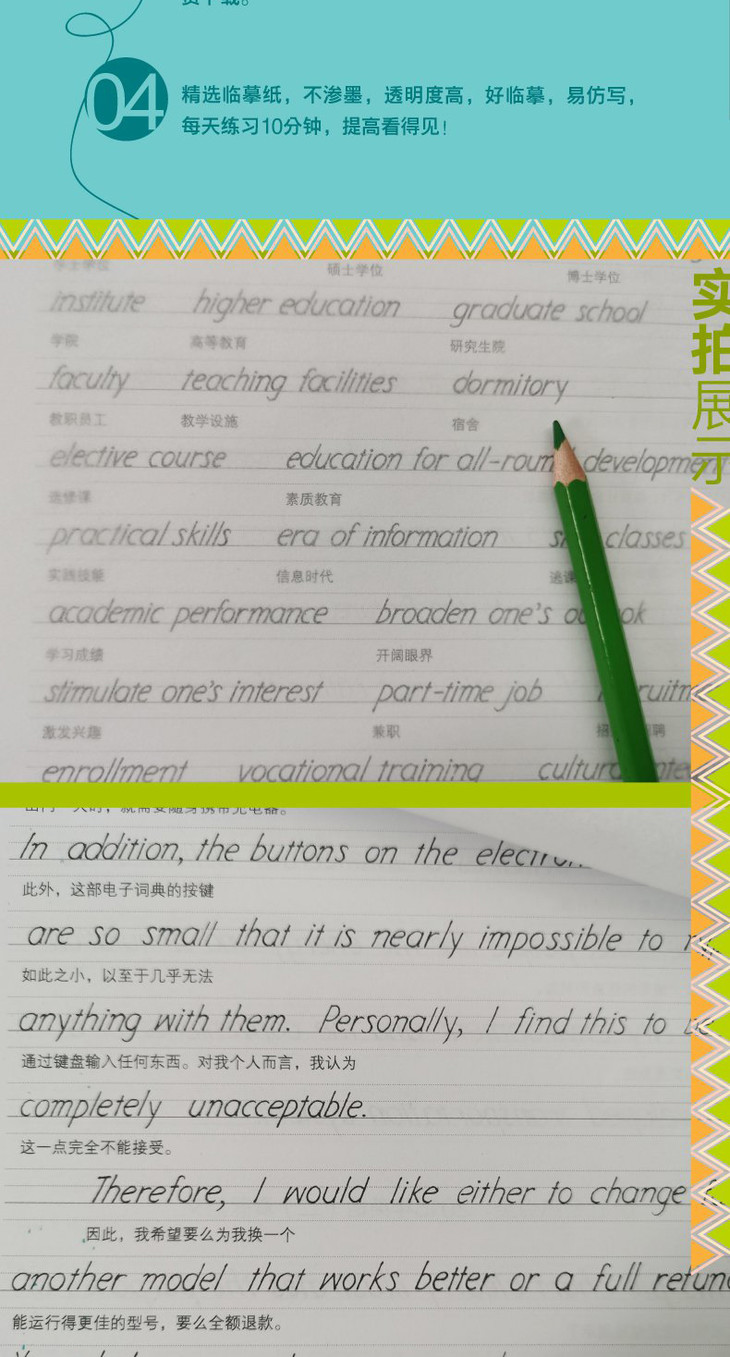 04
精选临摹纸，不渗墨，透明度高，好临摹，易仿写，
每天练习10分钟，提高看得见！
实拍展示
学士学位 硕士学位 博士学位
institute higher education graduate school
学院 高等教育 研究生院
faculty teaching facilities dormitory
教职员工 教学设施 宿舍
elective course education for all-round development
选修课 素质教育
practical skills era of information classes
实践技能 信息时代 逃课
academic performance broaden one's
学习成绩 开阔眼界
stimulate one's interest part-time job
激发兴趣 兼职
enrollment vocational training
In addition, the buttons on the
此外，这部电子词典的按键
are so small that it is nearly impossible to
如此之小，以至于几乎无法
anything with them. Personally, I find this to
通过键盘输入任何东西。对我个人而言，我认为
completely unacceptable.
这一点完全不能接受。
Therefore, I would like either to change
因此，我希望要么为我换一个
another model that works better or a full refund
能运行得更佳的型号，要么全额退款。